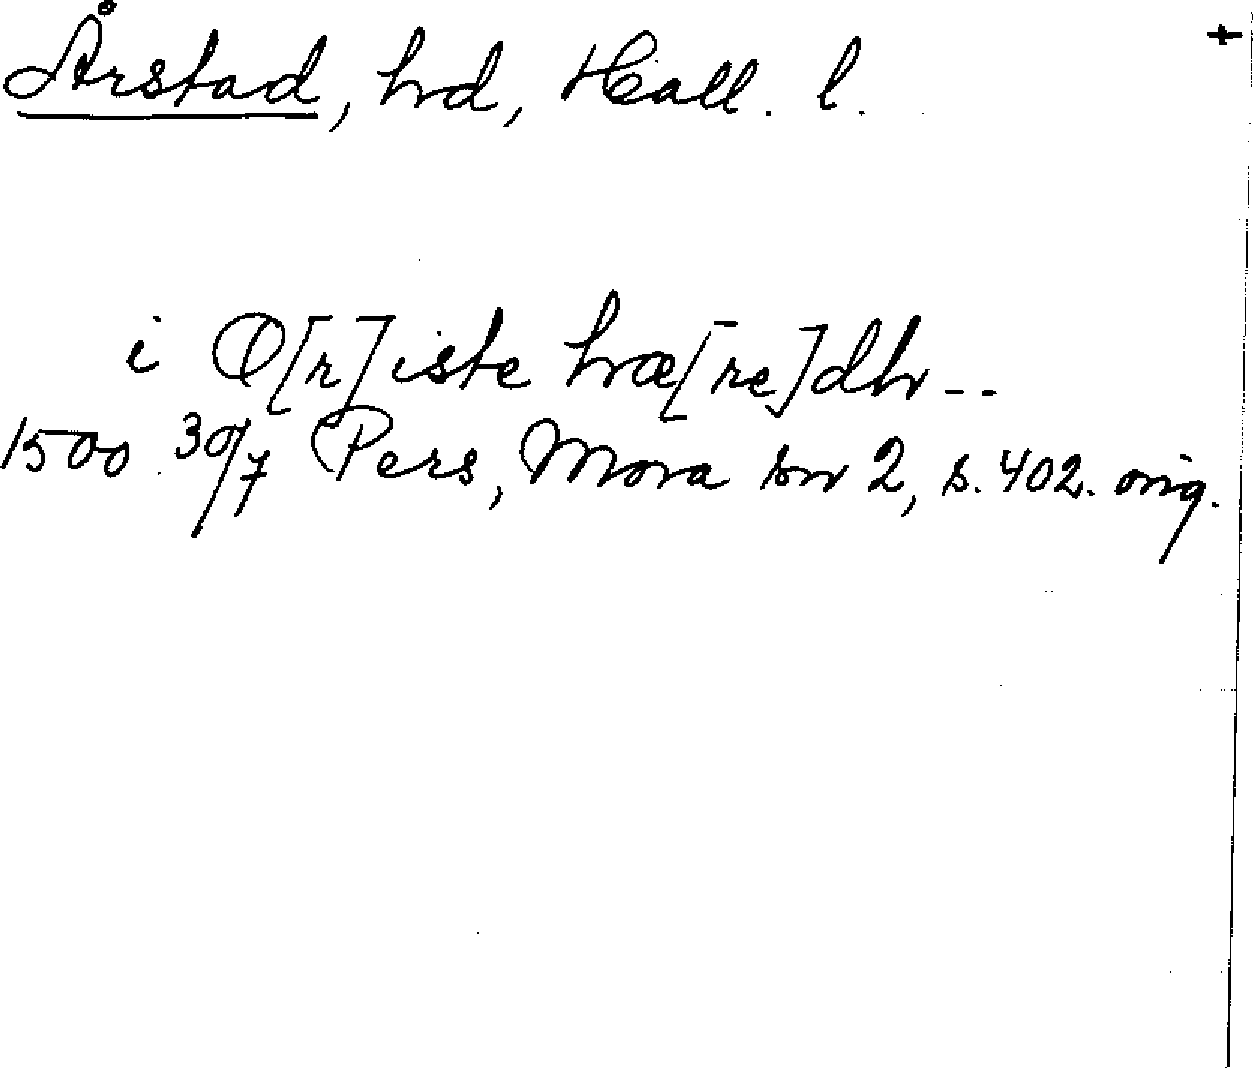 Årstad, hd, Hall. l. +
i O[r]iste hæ[re]dh--
1500 30/7 Pers, Mora sn 2, s. 402. orig.